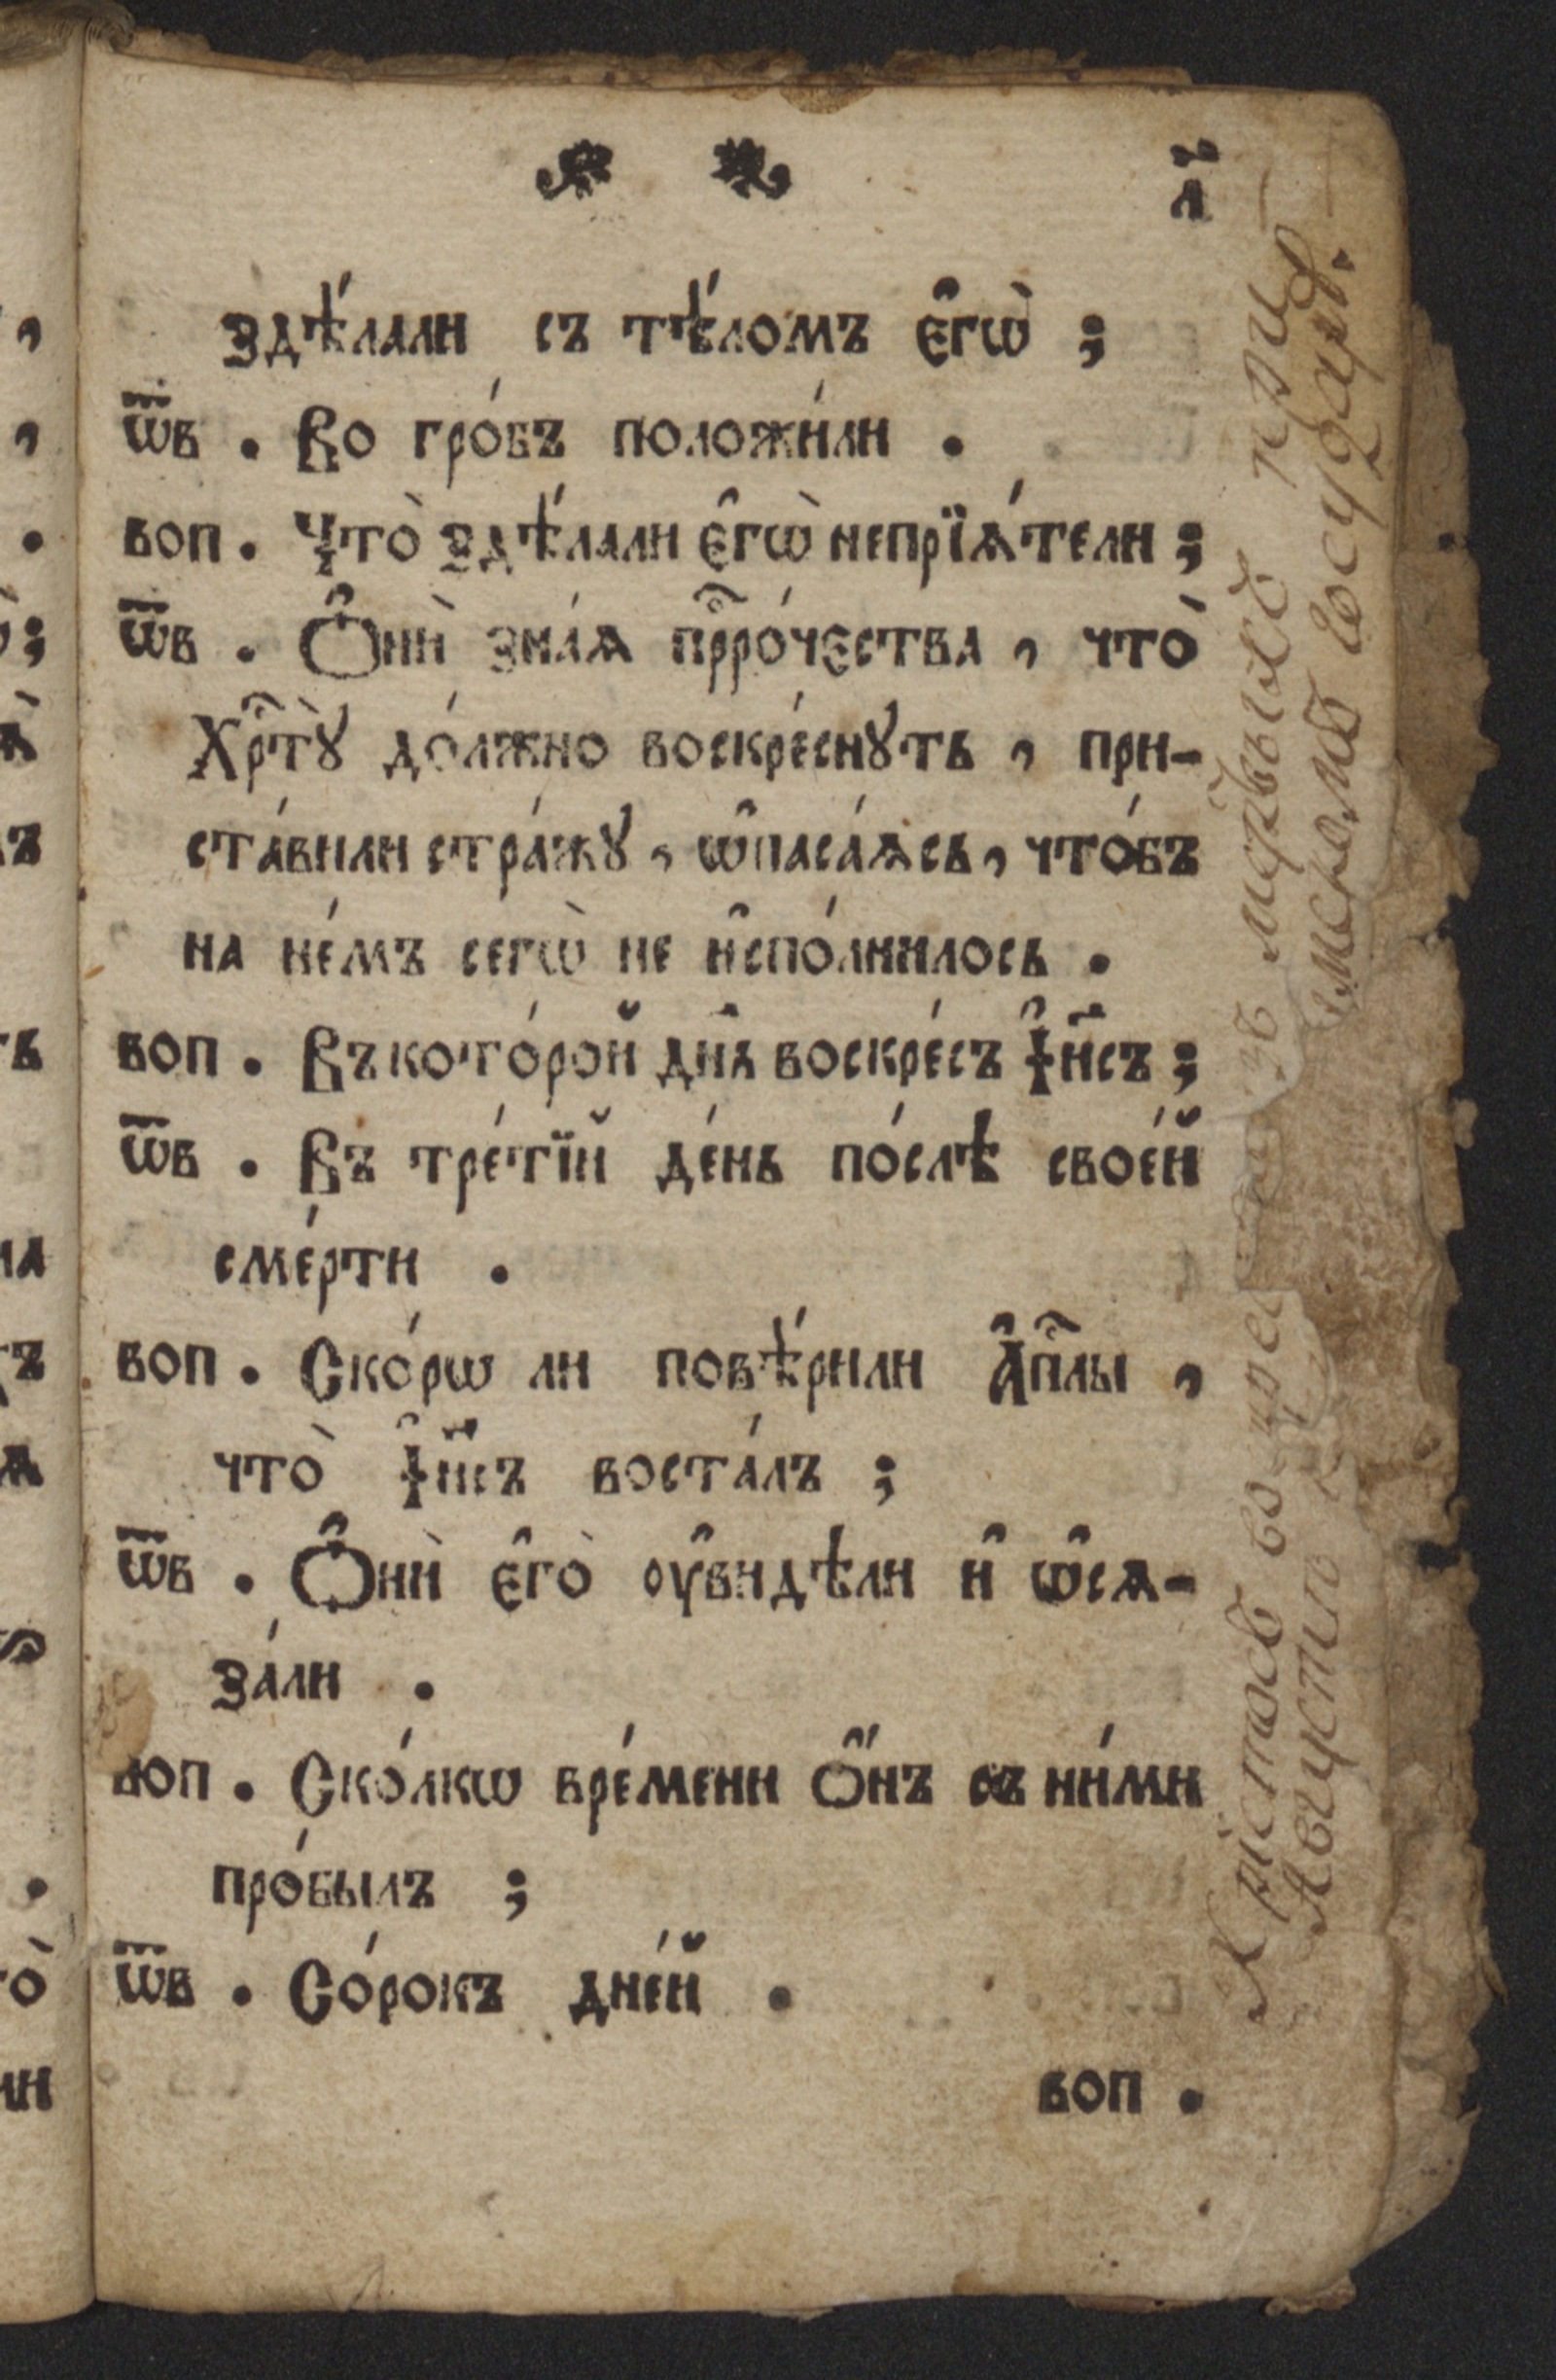 л҃
здѣ́лали съ тѣ́ломъ є҆гѡ̀ ;
ѿв . Во гро́бъ положи́ли .
воп . Что̀ здѣ́лали є҆гѡ̀ непрїѧ́тели ;
ѿв . Ѻ҆нѝ зна́ѧ прⷪ҇ро́чєства , что́
Хрⷭ҇тꙋ̀ до́лжно воскре́снꙋть , при-
ста́вили стра́жꙋ , ѡ҆паса́ѧсь , что́бъ
на не́мъ сегѡ̀ не и҆спо́лнилось .
воп . Въ кото́рой дн҃ѧ воскре́съ І҆и҃съ ;
ѿв . Въ тре́тїй де́нь по́слѣ свое́й
сме́рти .
воп . Ско́рѡ ли повѣ́рили А҆пⷭ҇лы ,
что̀ І҆и҃съ воста́лъ ;
ѿв . Ѻ҆нѝ є҆го̀ ᲂу҆ви́дѣли и҆ ѡ҆сѧ-
за́ли .
воп . Ско́лкѡ вре́мени ѻ҆́нъ съ ни́ми
про́былъ ;
ѿв . Со́рокъ дне́й .
воп .
Христосъ воскресе изъ мертвыхъ при
Августе кесаремъ Государ.